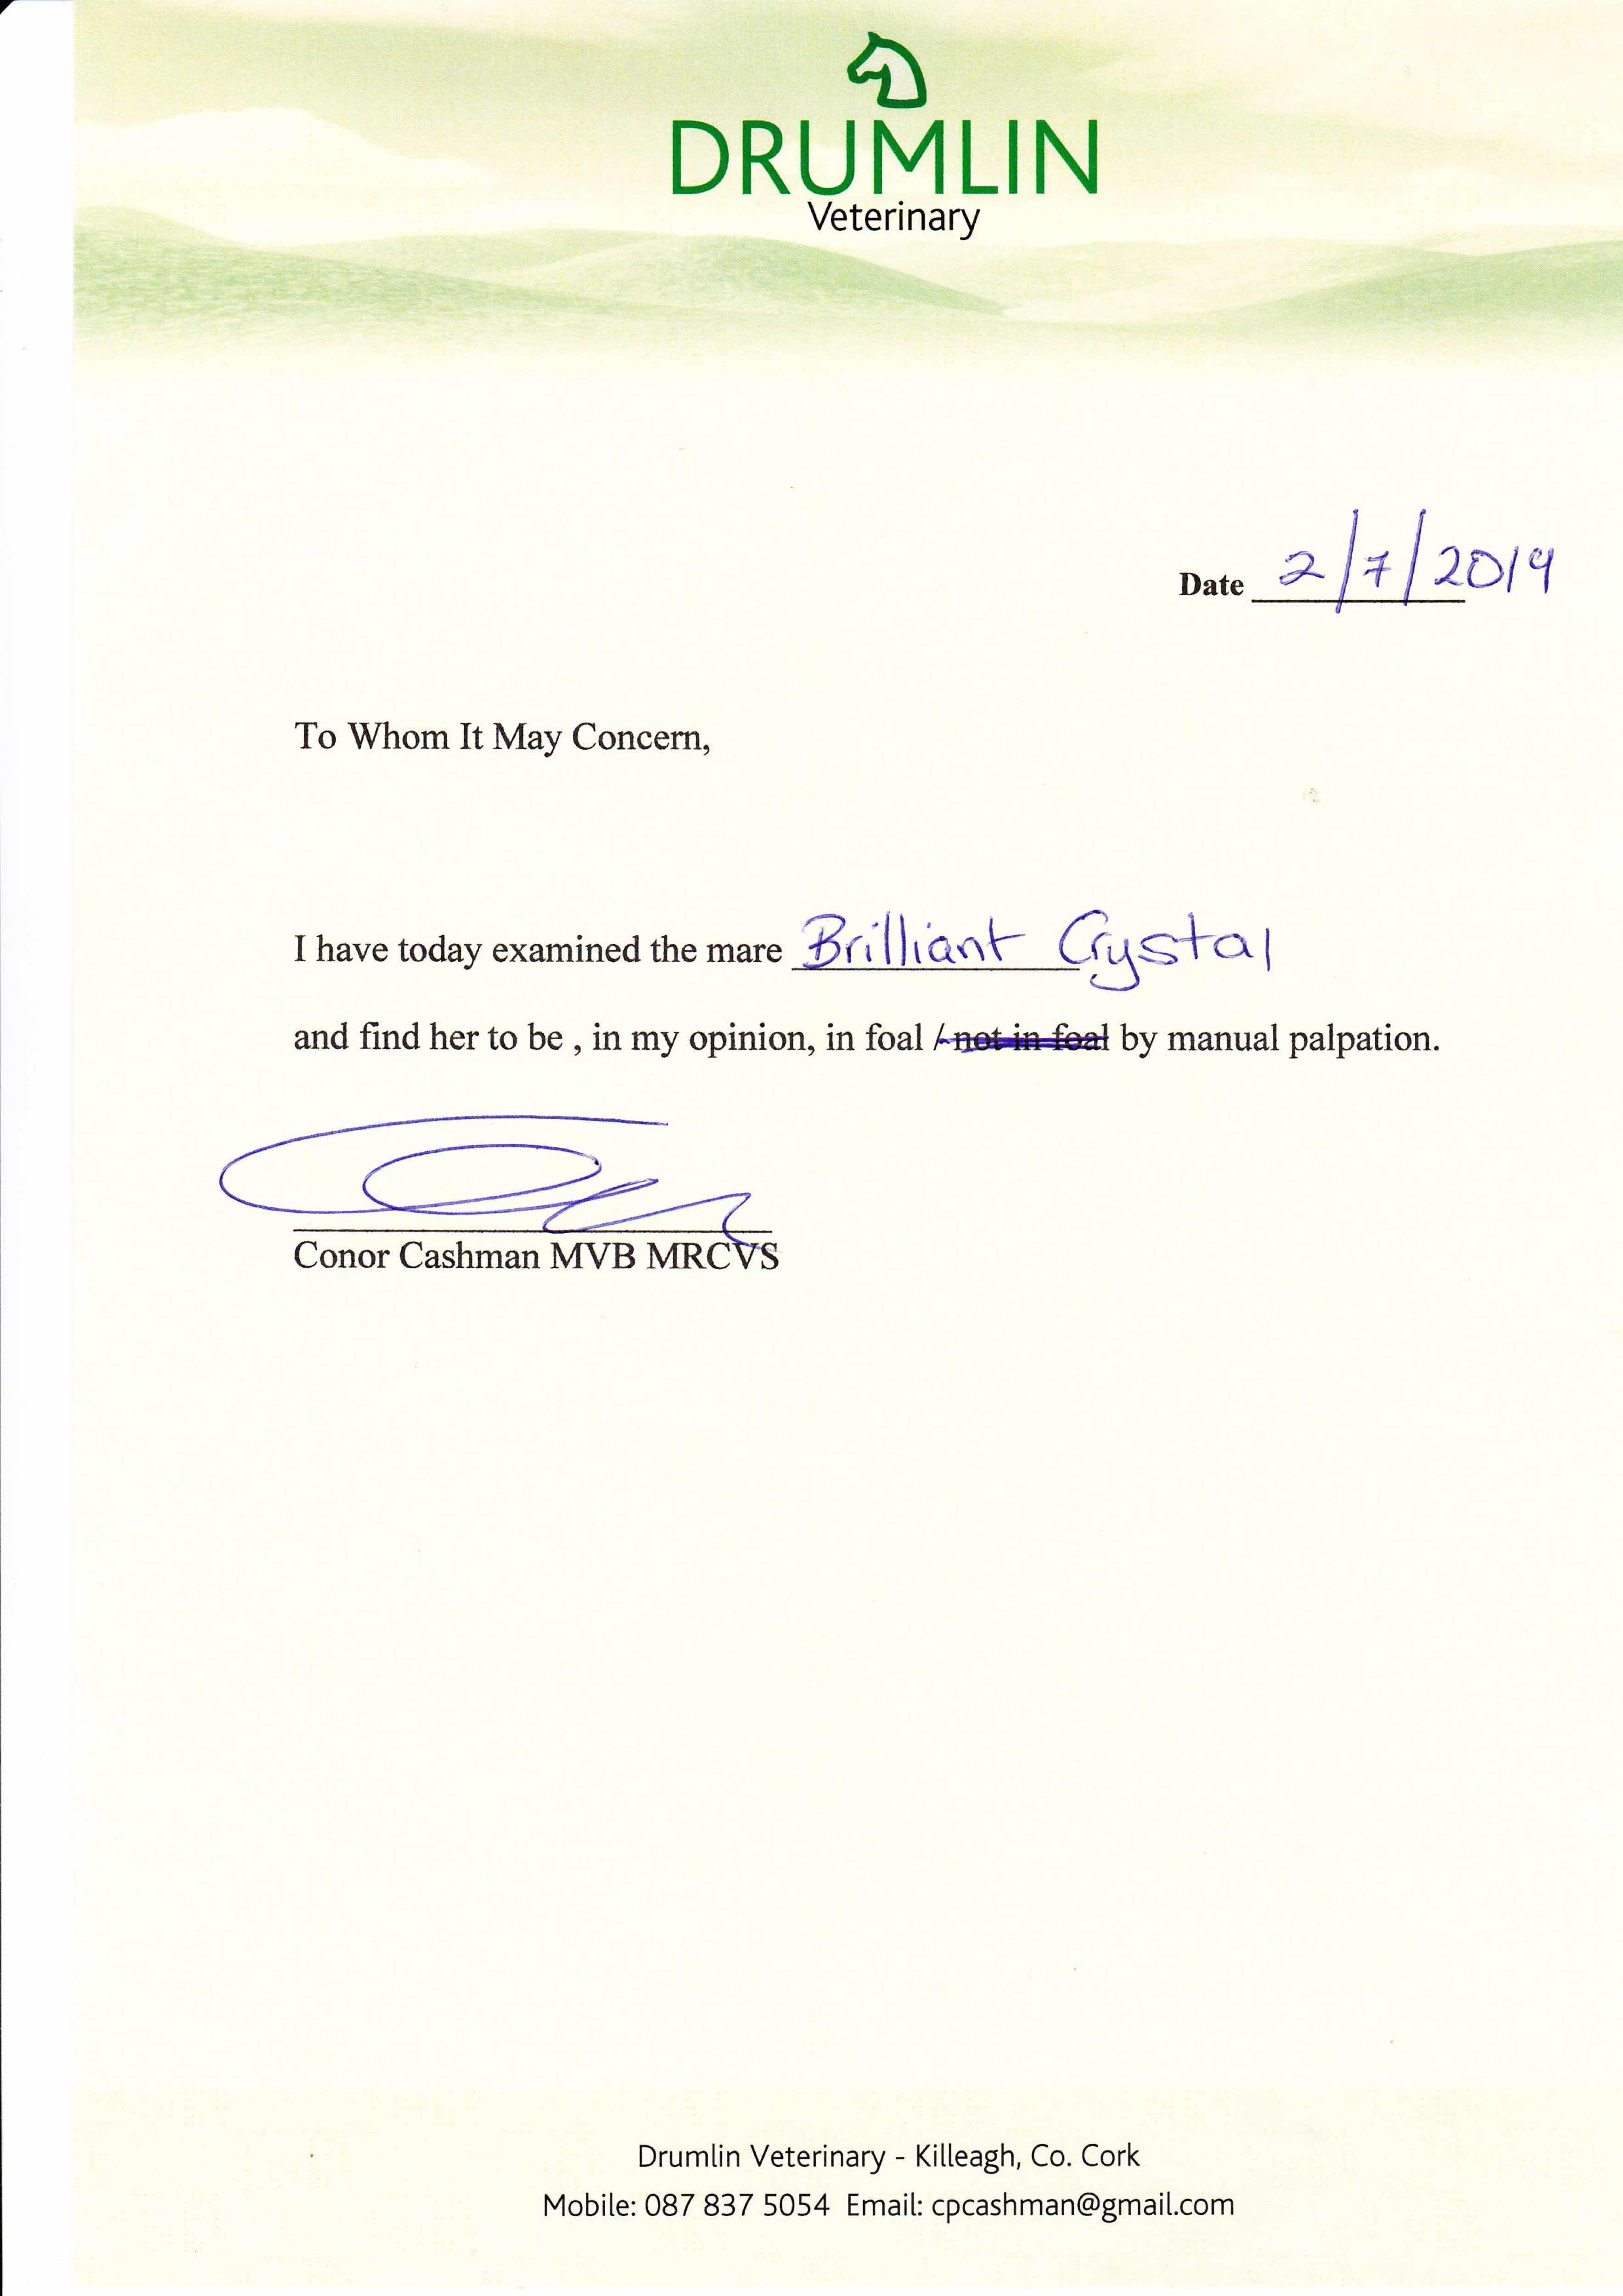 DRUMLIN
Veterinary
Date 2/7/2019
To Whom It May Concern,
I have today examined the mare Brilliant Crystal
and find her to be , in my opinion, in foal / not in foal by manual palpation.
Conor Cashman MVB MRCVS
Drumlin Veterinary - Killeagh, Co. Cork
Mobile: 087 837 5054 Email: cpcashman@gmail.com